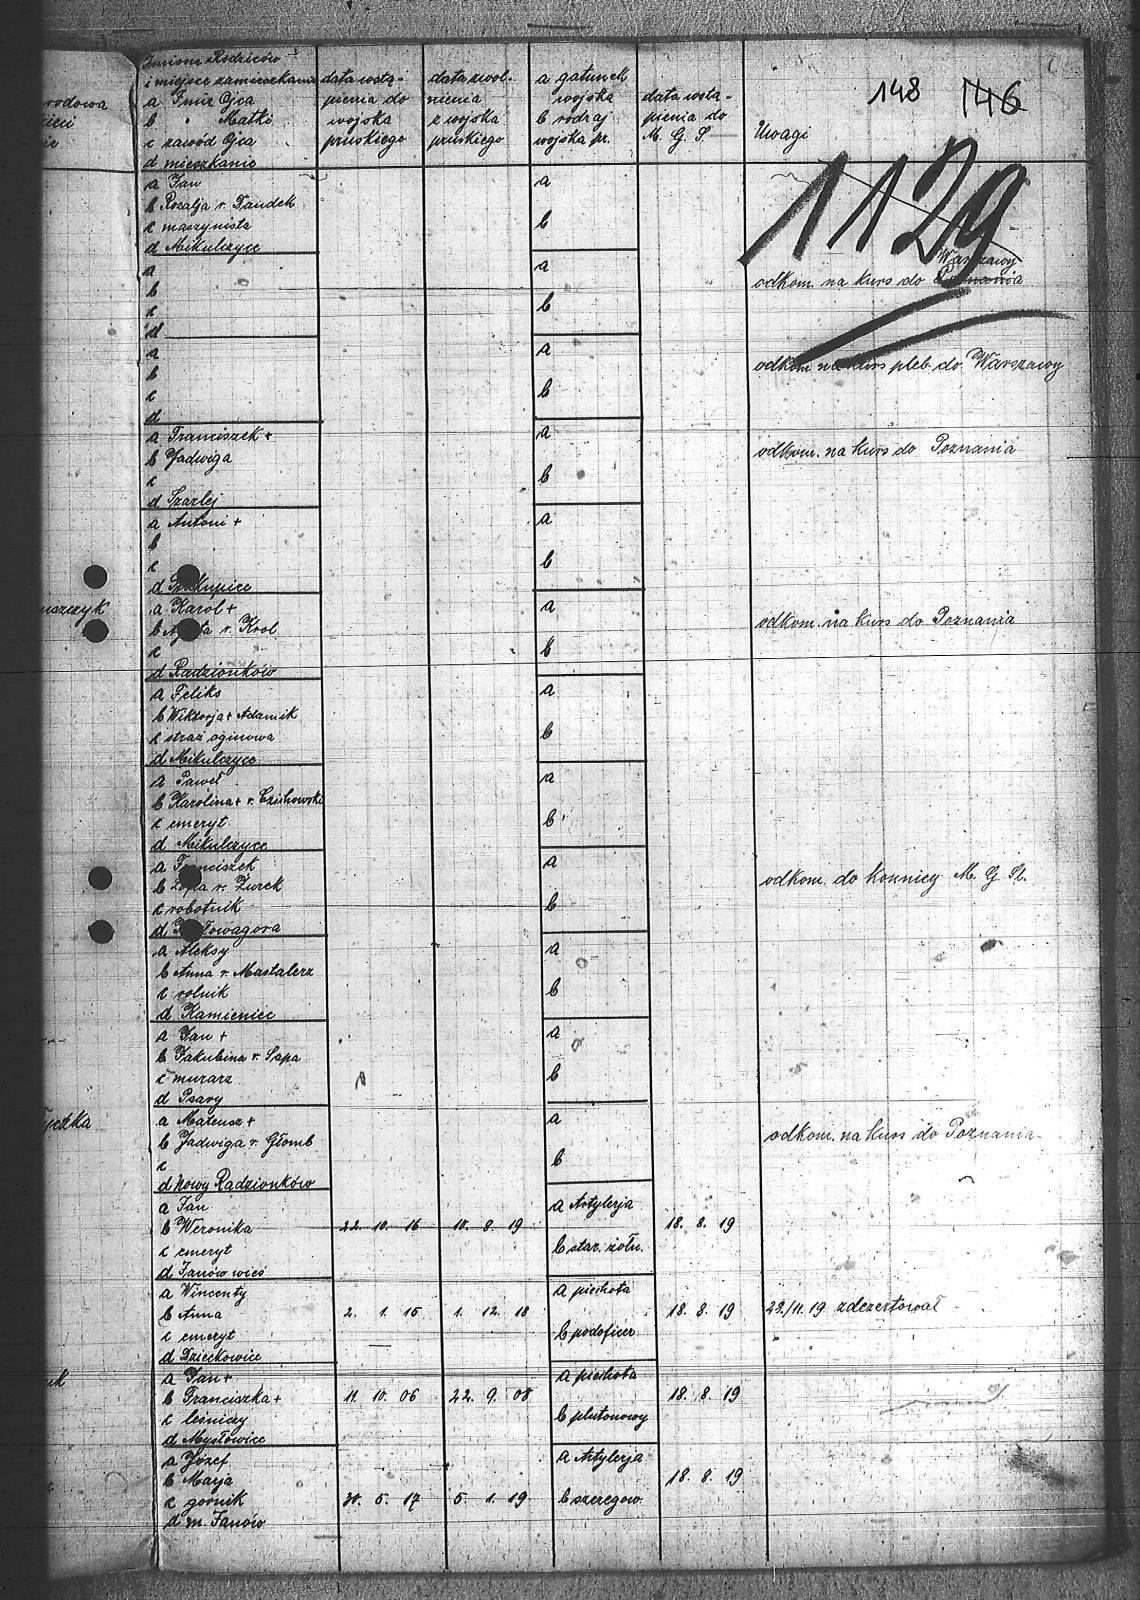 148 146
1129
Imiona Rodziców
i miejsce zamieszkania
a Imię Ojca
b " Matki
c zawód Ojca
d mieszkanie
data wstą-
pienia do
wojska
pruskiego
data zwol-
nienia
z wojska
pruskiego
a gatunek
wojska
b rodzaj
wojska pr.
data wstą-
pienia do
M. G. S.
Uwagi
rodowa
a Jan
b Rozalja r. Dandek
c maszynista
d Mikulczyce
a
b
a
b
c
d
a
b
Warszawy
odkom. na kurs do Poznania
a
b
c
d
a
b
odkom. na kurs pleb. do Warszawy
a Franciszek +
b Jadwiga
c
d Szarlej
a
b
odkom. na kurs do Poznania
a Antoni +
b
c
d
a
b
a Karol +
b r. Krol
c
d Radzionków
a
b
odkom. na kurs do Poznania
a Feliks
b Wiktorja + Adamik
c straż ogniowa
d Mikulczyce
a
b
a Paweł
b Karolina + r. Czuhowski
c emeryt
d Mikulczyce
a
b
a Franciszek
b r. Żurek
c robotnik
d
a
b
odkom. do konnicy M. G. Sl.
a Aleksy
b Anna r. Mastalerz
c rolnik
d Kamieniec
a
b
a Jan +
b Jakubina r. Sapa
c murarz
d Psary
a
b
a Mateusz +
b Jadwiga r. Głomb
c
d Nowy Radzionków
a
b
odkom. na kurs do Poznania
a Jan
b Weronika
c emeryt
d Janów wieś
22. 10. 16
10. 8. 19
a Artylerja
b star. żołn.
18. 8. 19
a Wincenty
b Anna
c emeryt
d Dzieckowice
2. 1. 15
1. 12. 18
a piechota
b podoficer
18. 8. 19
29./11.19 zdezertował
a Jan +
b Franciszka +
c leśniczy
d Mysłowice
11. 10. 06
22. 9. 08
a piechota
b plutonowy
18. 8. 19
a Józef
b Marja
c górnik
d m. Janów
30. 5. 17
5. 1. 19
a Artylerja
b szeregow.
18. 8. 19